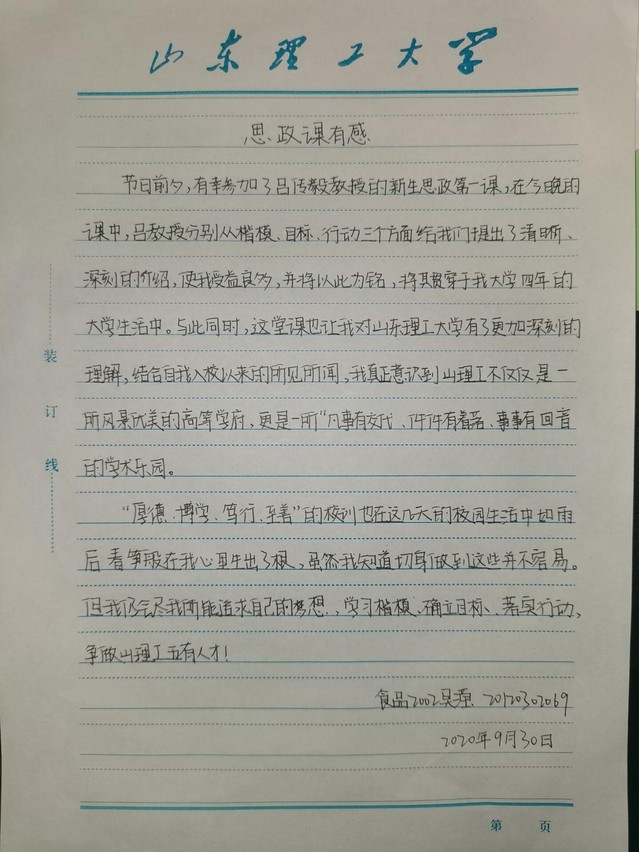 山东理工大学
思政课有感
节日前夕,有幸参加了吕传毅教授的新生思政第一课,在今晚的
课中,吕教授分别从楷模、目标、行动三个方面给我们提出了清晰、
深刻的介绍,使我受益良多,并将以此为铭,将其贯穿于我大学四年的
大学生活中。与此同时,这堂课也让我对山东理工大学有了更加深刻的
理解,结合自我入校以来的所见所闻,我真正意识到山理工不仅仅是一
所风景优美的高等学府,更是一所“凡事有交代、件件有着落、事事有回音
的学术乐园。
“厚德、博学、笃行、至善”的校训也在这几天的校园生活中如雨
后春笋般在我心里生出了根,虽然我知道切身做到这些并不容易。
但我仍会尽我所能追求自己的梦想、学习楷模、确立目标、落实行动、
争做山理工五有人才!
食品2002吴 20120302069
2020年9月30日
装
订
线
第 页